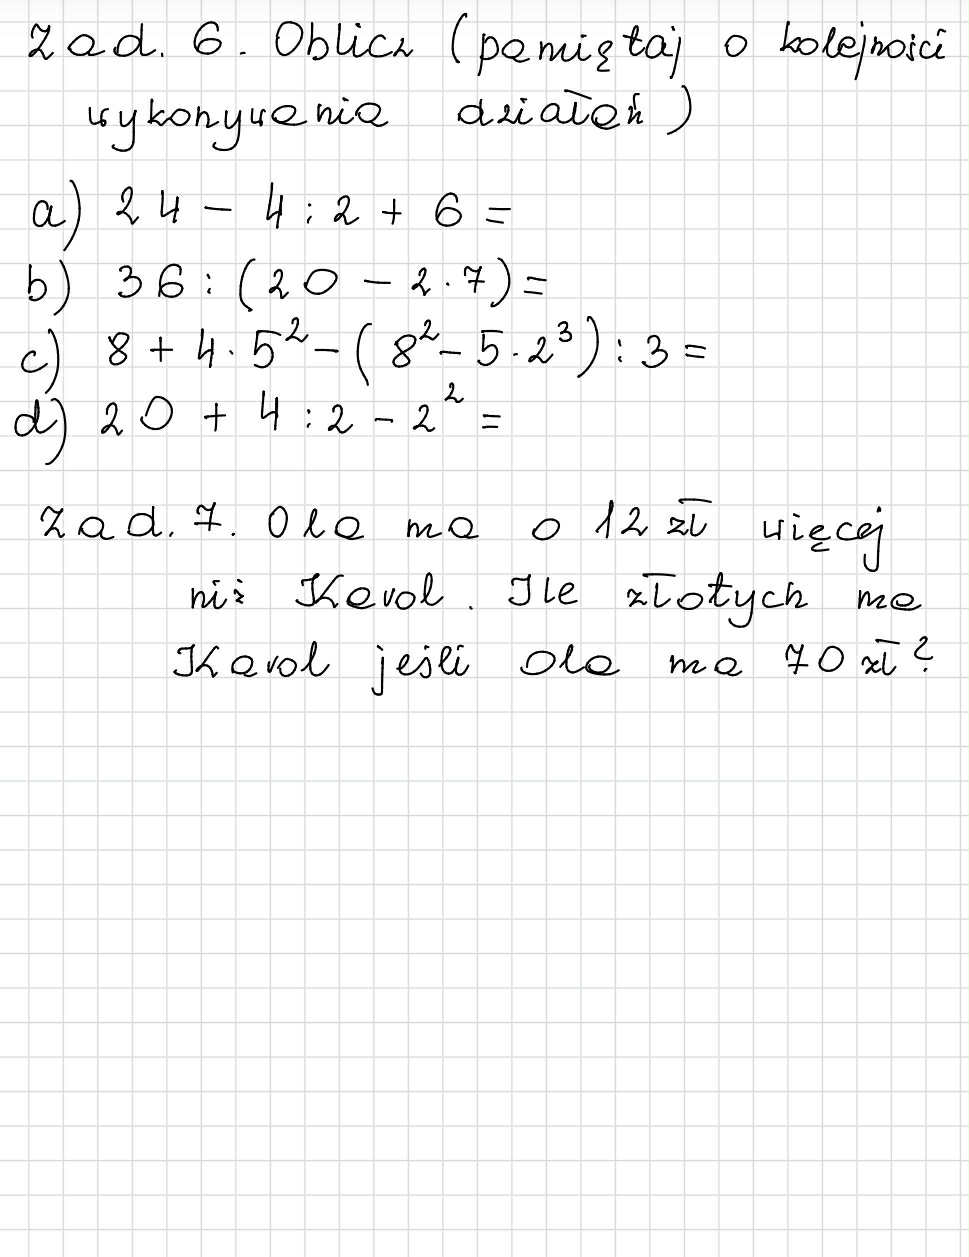 Zad. 6. Oblicz (pamiętaj o kolejności
wykonywania działań)
a) 24 - 4 : 2 + 6 =
b) 36 : (20 - 2 · 7) =
c) 8 + 4 · 5² - (8² - 5 · 2³) : 3 =
d) 20 + 4 : 2 - 2² =
Zad. 7. Ola ma o 12 zł więcej
niż Karol. Ile złotych ma
Karol jeśli Ola ma 70 zł?